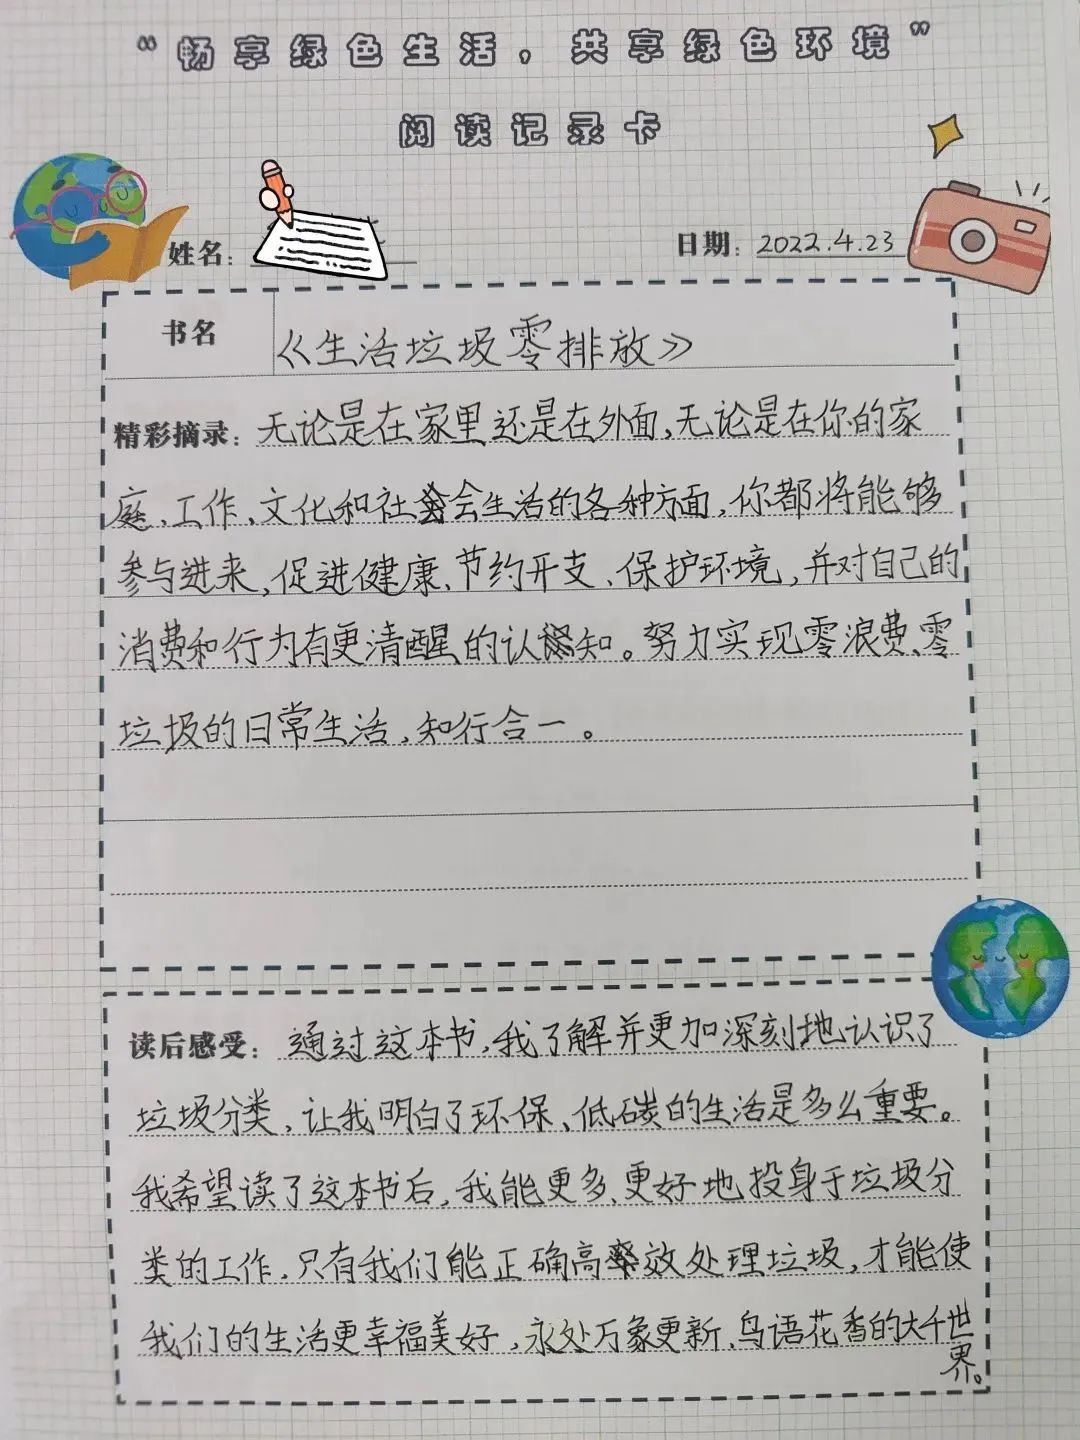 “畅享绿色生活，共享绿色环境”
阅读记录卡
姓名：
日期：2022.4.23
书名
《生活垃圾零排放》
精彩摘录：无论是在家里还是在外面，无论是在你的家
庭、工作、文化和社会生活的各种方面，你都将能够
参与进来，促进健康、节约开支、保护环境，并对自己的
消费和行为有更清醒的认知。努力实现零浪费、零
垃圾的日常生活，知行合一。
读后感受：通过这本书，我了解并更加深刻地认识了
垃圾分类，让我明白了环保、低碳的生活是多么重要。
我希望读了这本书后，我能更多、更好地投身于垃圾分
类的工作，只有我们能正确高效处理垃圾，才能使
我们的生活更幸福美好，永处万象更新、鸟语花香的大千世
界。